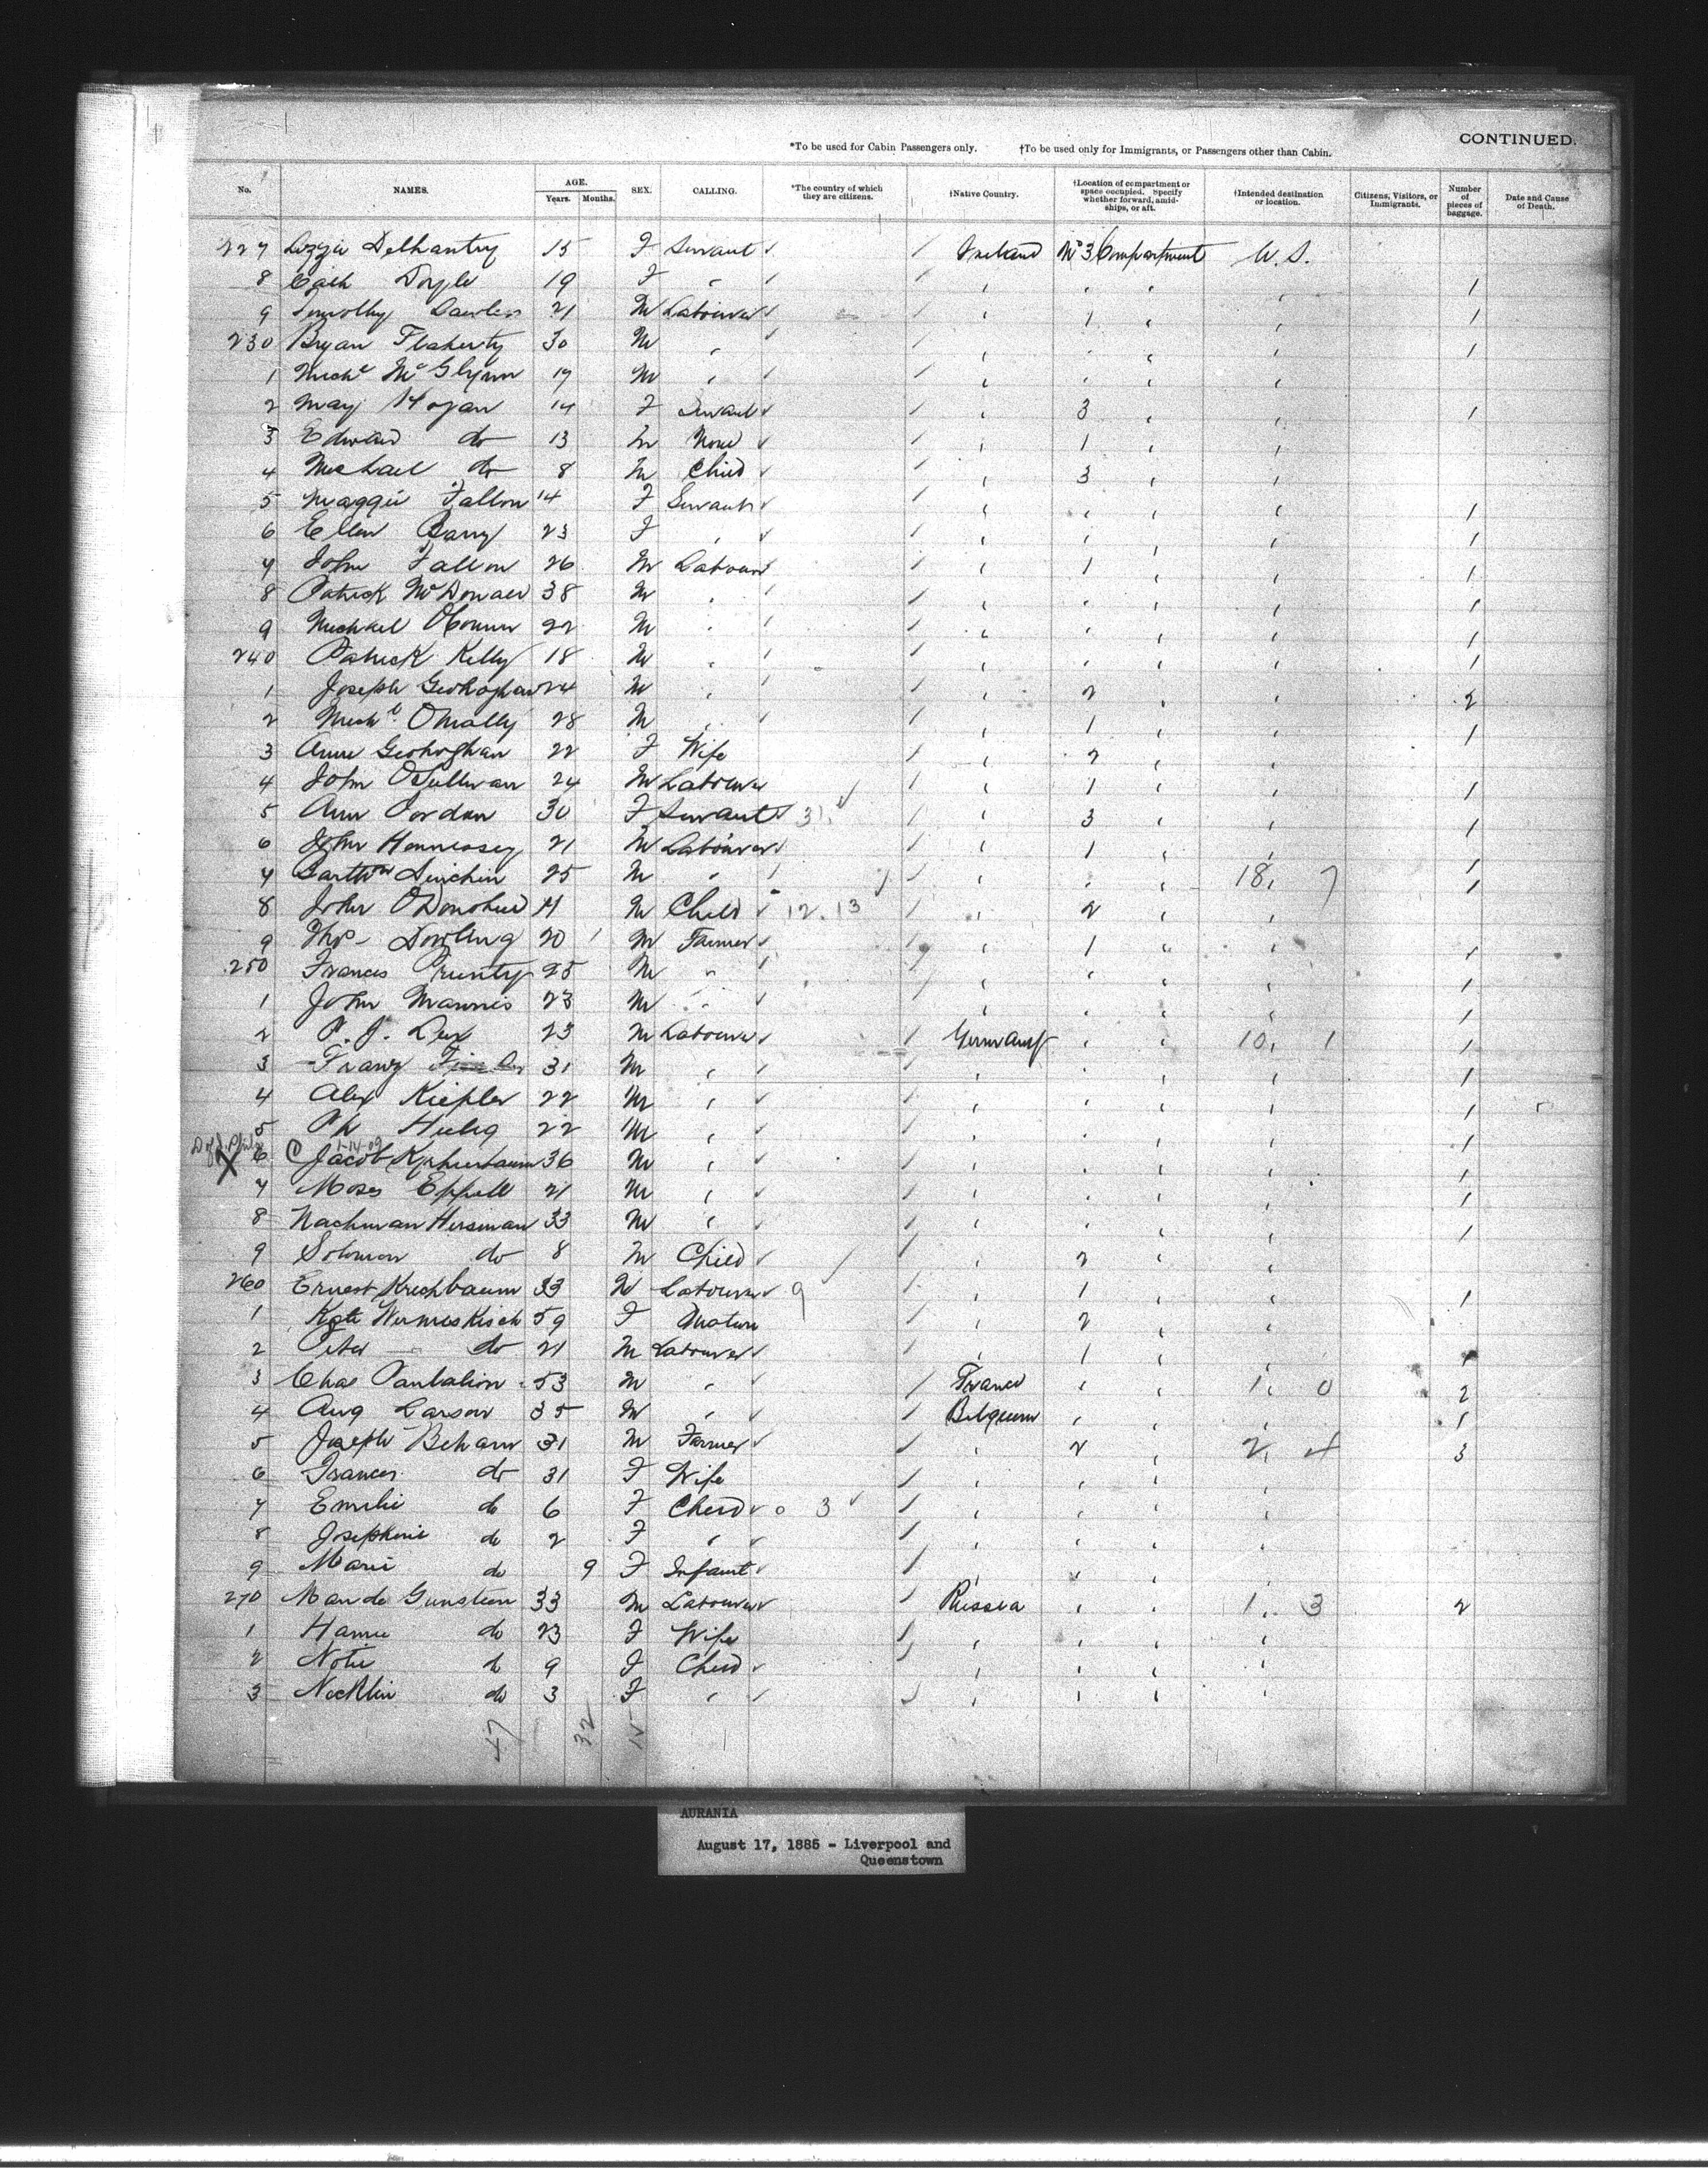 CONTINUED.
*To be used for Cabin Passengers only. †To be used only for Immigrants, or Passengers other than Cabin.
No. NAMES. AGE. Years. Months. SEX. CALLING. *The country of which they are citizens. †Native Country. †Location of compartment or space occupied. Specify whether forward, amidships, or aft. †Intended destination or location. Citizens, Visitors, or Immigrants. Number of pieces of baggage. Date and Cause of Death.
227 Lizzie Delhantry 15 F Servant Ireland No 3 Compartment U. S.
8 Cath Doyle 19 F " 1
9 Timothy 21 M Labourer 1 1
230 Bryan Flaherty 30 M " 1
1 Michl McGlynn 19 M "
2 May Hogan 14 F Servant 3 1
3 Edward do 13 M None 1
4 Michael do 8 M Child 3
5 Maggie Fallon 14 F Servant 1
6 Ellen Barry 23 F " 1
7 John Fallon 26 M Labourer 1 1
8 Patrick McDonald 38 M " 1
9 Michael OConnor 22 M " 1
240 Patrick Kelly 18 M " 1
1 Joseph Geohoghan 24 M " 2 2
2 Michl OMally 28 M " 1 1
3 Anne Geohoghan 22 F Wife 2
4 John OSullivan 24 M Labourer 1 1
5 Ann Jordan 30 F Servant 31 3 1
6 John Hennessey 21 M Labourer 1 1
7 Bartw Linchin 25 M " 18 7 1
8 John ODonohue 11 M Child 12 13 2
9 Thos Dowling 20 M Farmer 1 1
250 Frances Prunty 25 M " 1
1 John Mannis 23 M " 1
2 P. J. 23 M Labourer Germany 10 1 1
3 Franz 31 M " 1
4 Alex Kiepler 22 M " 1
5 Ph 22 M " 1
1-14-09
X 6 Jacob 36 M " 1
7 Moses Eppell 21 M " 1
8 Nachman Hersman 33 M " 1
9 Solomon do 8 M Child 2
260 Ernest Kuchbaum 33 M Labourer 9 1 1
1 Kate 59 F Matron 2
2 Peter do 21 M Labourer 1 1
3 Chas Pantalion 53 M " France 1 0 2
4 Aug Larson 35 M " Belgium 1
5 Joseph Beham 31 M Farmer 2 2 4 3
6 Frances do 31 F Wife
7 Emilie do 6 F Child 0 3
8 Josephine do 2 F "
9 Marie do 9 F Infant
270 33 M Labourer Russia 1 3 2
1 Hanne do 23 F Wife
2 Notie do 9 F Child
3 do 3 F "
47 32 15
AURANIA
August 17, 1885 - Liverpool and
Queenstown